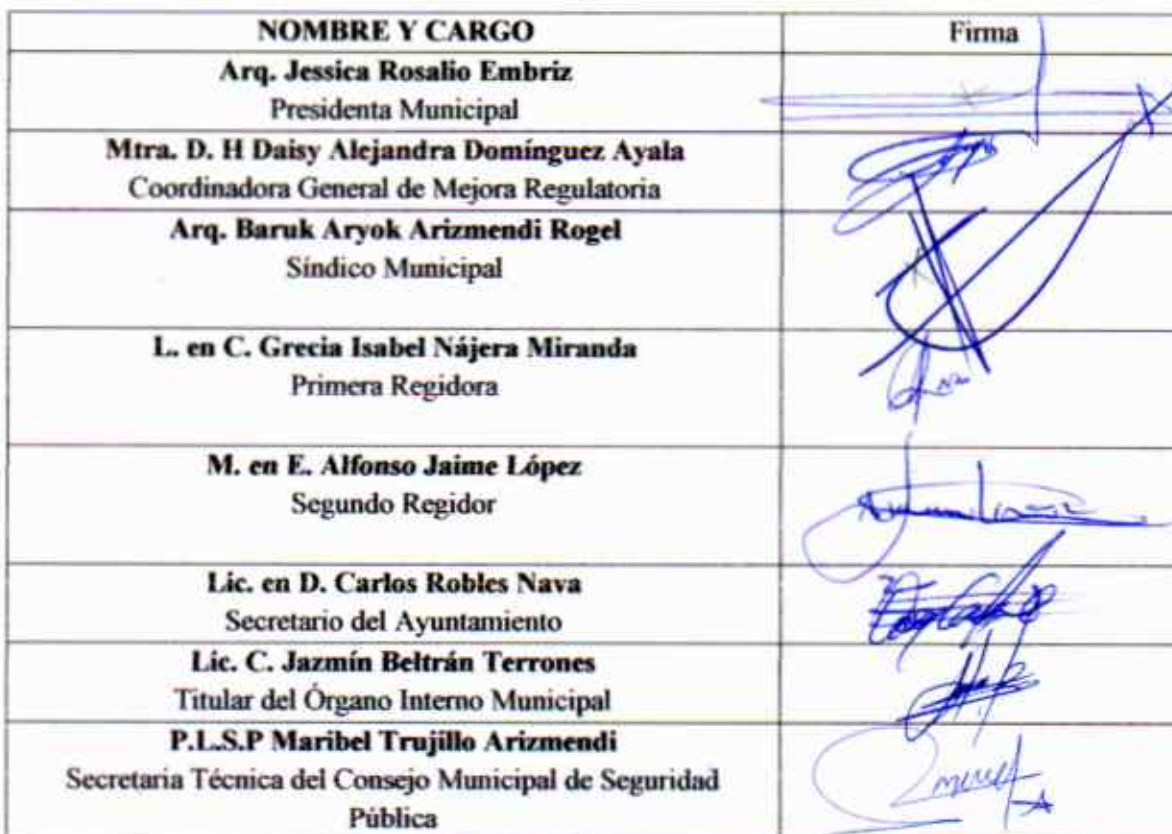 NOMBRE Y CARGO Firma
Arq. Jessica Rosalio Embriz
Presidenta Municipal
Mtra. D. H Daisy Alejandra Domínguez Ayala
Coordinadora General de Mejora Regulatoria
Arq. Baruk Aryok Arizmendi Rogel
Síndico Municipal
L. en C. Grecia Isabel Nájera Miranda
Primera Regidora
M. en E. Alfonso Jaime López
Segundo Regidor
Lic. en D. Carlos Robles Nava
Secretario del Ayuntamiento
Lic. C. Jazmín Beltrán Terrones
Titular del Órgano Interno Municipal
P.L.S.P Maribel Trujillo Arizmendi
Secretaria Técnica del Consejo Municipal de Seguridad
Pública